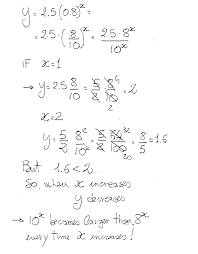 y = 2.5(0.8)^x =
= 2.5 · (8/10)^x = 2.5 · 8^x / 10^x
if x=1
→ y = 2.5 8/10 = 5/2 8/10 = 2
x=2
y = 5/2 8²/10² = 5/2 64/100 = 8/5 = 1.6
But 1.6 < 2.
So, when x increases
y decreases
→ 10^x becomes larger than 8^x
every time x increases!